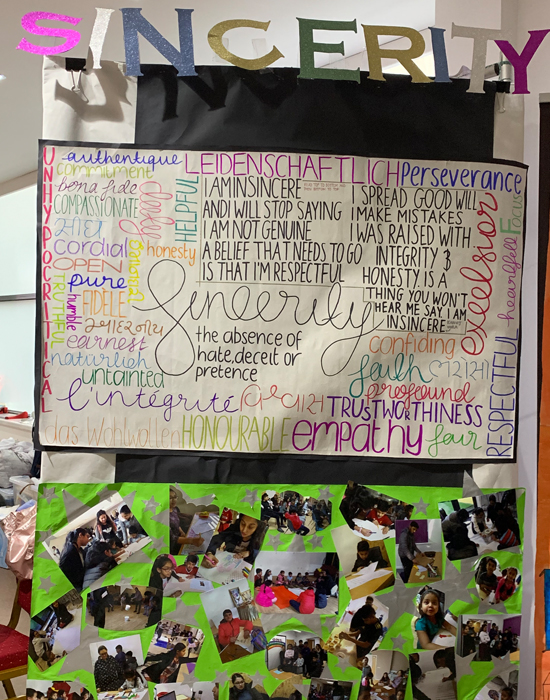 SINCERITY
UNHYPOCRITICAL
authentique
commitment
bona fide
COMPASSIONATE
cordial
OPEN
pure
humble
TRUTHFUL
FIDELE
earnest
naturlich
untainted
l'intégrité
das Wohlwollen
HELPFUL
honesty
LEIDENSCHAFTLICH
Perseverance
I AM INSINCERE
AND WILL STOP SAYING
I AM NOT GENUINE
A BELIEF THAT NEEDS TO GO
IS THAT I'M RESPECTFUL
I SPREAD GOOD WILL
I MAKE MISTAKES
I WAS RAISED WITH
INTEGRITY &
HONESTY IS A
THING YOU WON'T
HEAR ME SAY I AM
INSINCERE
Sincerity
the absence of
hate, deceit or
pretence
excelsior
heartfelt
FOCUS
confiding
faith
profound
TRUSTWORTHINESS
RESPECTFUL
HONOURABLE
empathy
fair